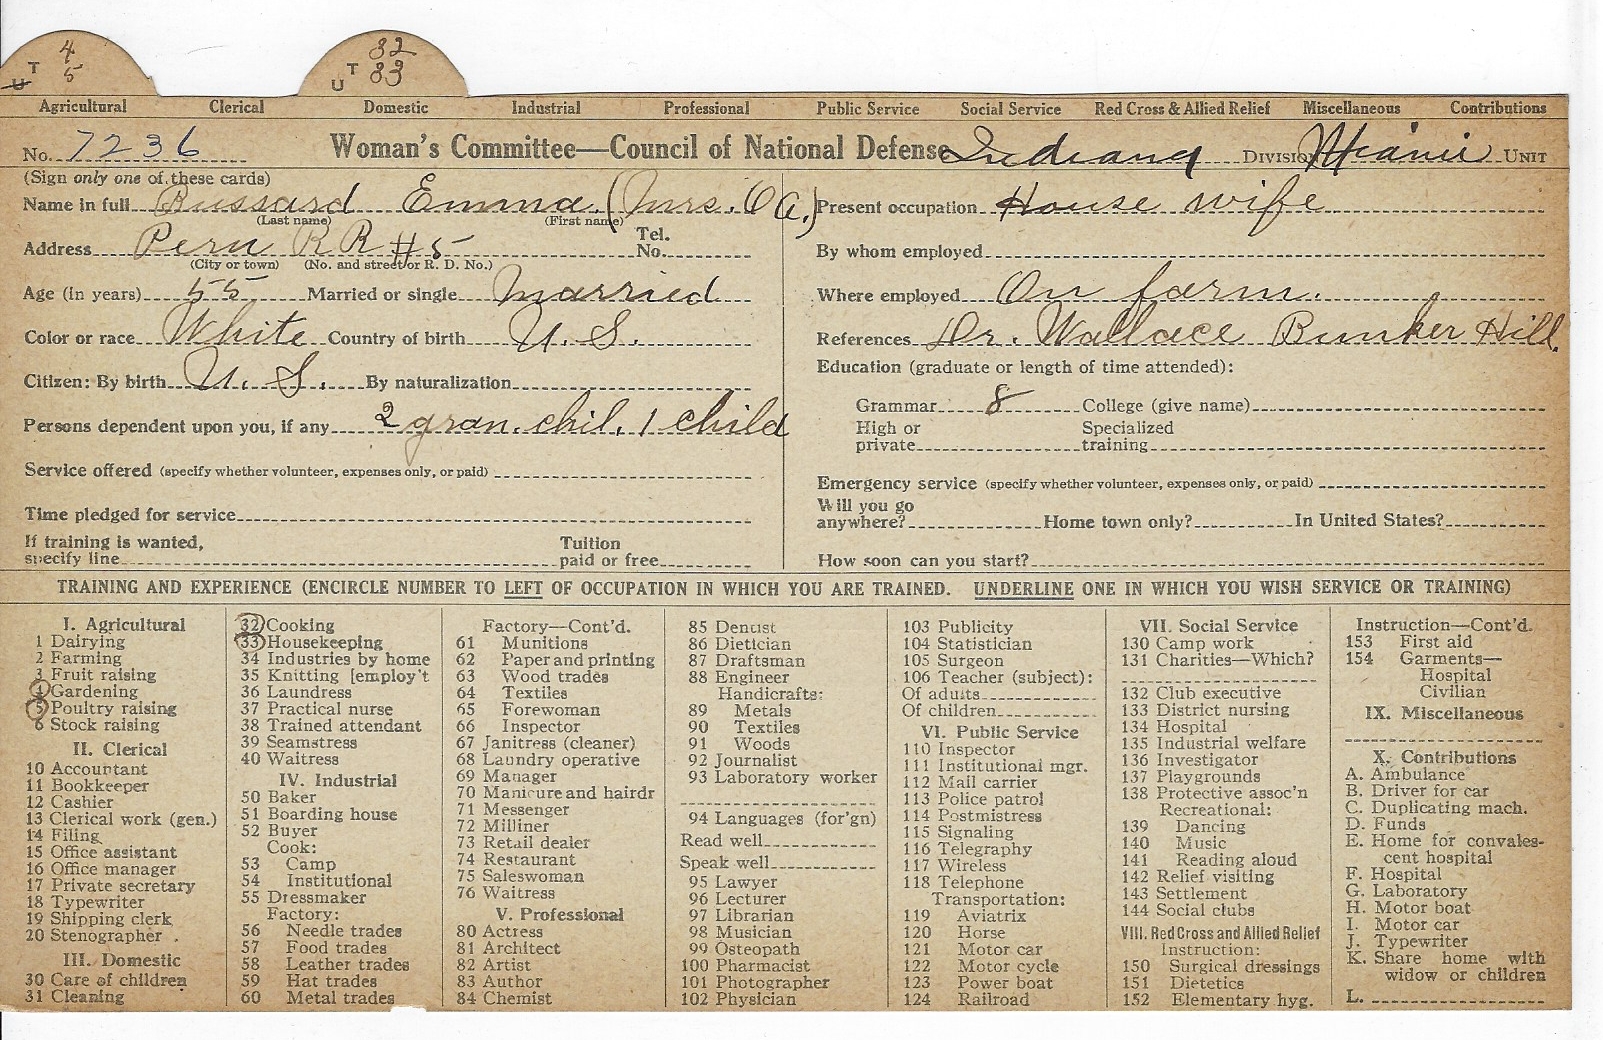 T 4
U 5
T 32
U 33
Agricultural Clerical Domestic Industrial Professional Public Service Social Service Red Cross & Allied Relief Miscellaneous Contributions
No. 7236 Woman's Committee—Council of National Defense Indiana DIVISION Miami UNIT
(Sign only one of these cards)
Name in full Bussard Emma (Mrs. O A.)
(Last name) (First name)
Address Peru R R #5 Tel. No.
(City or town) (No. and street or R. D. No.)
Age (in years) 55 Married or single Married
Color or race White Country of birth U. S.
Citizen: By birth U. S. By naturalization
Persons dependent upon you, if any 2 gran. chil. 1 child
Service offered (specify whether volunteer, expenses only, or paid)
Time pledged for service
If training is wanted, specify line Tuition paid or free
Present occupation House wife
By whom employed
Where employed On farm.
References Dr. Wallace Bunker Hill.
Education (graduate or length of time attended):
Grammar 8 College (give name)
High or private Specialized training
Emergency service (specify whether volunteer, expenses only, or paid)
Will you go anywhere? Home town only? In United States?
How soon can you start?
TRAINING AND EXPERIENCE (ENCIRCLE NUMBER TO LEFT OF OCCUPATION IN WHICH YOU ARE TRAINED. UNDERLINE ONE IN WHICH YOU WISH SERVICE OR TRAINING)
I. Agricultural
1 Dairying
2 Farming
3 Fruit raising
4 Gardening
5 Poultry raising
6 Stock raising
II. Clerical
10 Accountant
11 Bookkeeper
12 Cashier
13 Clerical work (gen.)
14 Filing
15 Office assistant
16 Office manager
17 Private secretary
18 Typewriter
19 Shipping clerk
20 Stenographer
III. Domestic
30 Care of children
31 Cleaning
32 Cooking
33 Housekeeping
34 Industries by home
35 Knitting [employ't
36 Laundress
37 Practical nurse
38 Trained attendant
39 Seamstress
40 Waitress
IV. Industrial
50 Baker
51 Boarding house
52 Buyer
Cook:
53 Camp
54 Institutional
55 Dressmaker
Factory:
56 Needle trades
57 Food trades
58 Leather trades
59 Hat trades
60 Metal trades
Factory—Cont'd.
61 Munitions
62 Paper and printing
63 Wood trades
64 Textiles
65 Forewoman
66 Inspector
67 Janitress (cleaner)
68 Laundry operative
69 Manager
70 Manicure and hairdr
71 Messenger
72 Milliner
73 Retail dealer
74 Restaurant
75 Saleswoman
76 Waitress
V. Professional
80 Actress
81 Architect
82 Artist
83 Author
84 Chemist
85 Dentist
86 Dietician
87 Draftsman
88 Engineer
Handicrafts:
89 Metals
90 Textiles
91 Woods
92 Journalist
93 Laboratory worker
94 Languages (for'gn)
Read well
Speak well
95 Lawyer
96 Lecturer
97 Librarian
98 Musician
99 Osteopath
100 Pharmacist
101 Photographer
102 Physician
103 Publicity
104 Statistician
105 Surgeon
106 Teacher (subject):
Of adults
Of children
VI. Public Service
110 Inspector
111 Institutional mgr.
112 Mail carrier
113 Police patrol
114 Postmistress
115 Signaling
116 Telegraphy
117 Wireless
118 Telephone
Transportation:
119 Aviatrix
120 Horse
121 Motor car
122 Motor cycle
123 Power boat
124 Railroad
VII. Social Service
130 Camp work
131 Charities—Which?
132 Club executive
133 District nursing
134 Hospital
135 Industrial welfare
136 Investigator
137 Playgrounds
138 Protective assoc'n
Recreational:
139 Dancing
140 Music
141 Reading aloud
142 Relief visiting
143 Settlement
144 Social clubs
VIII. Red Cross and Allied Relief
Instruction:
150 Surgical dressings
151 Dietetics
152 Elementary hyg.
Instruction—Cont'd.
153 First aid
154 Garments—
Hospital
Civilian
IX. Miscellaneous
X. Contributions
A. Ambulance
B. Driver for car
C. Duplicating mach.
D. Funds
E. Home for convales-
cent hospital
F. Hospital
G. Laboratory
H. Motor boat
I. Motor car
J. Typewriter
K. Share home with
widow or children
L.